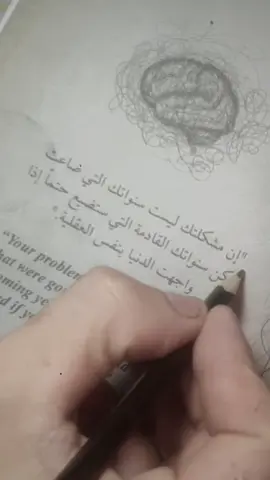 "إن مشكلتك ليست سنواتك التي ضاعت
كن سنواتك القادمة التي ستضيع حتماً إذا
واجهت الدنيا بنفس العقلية."
"Your problem
hat were go
oming ye
d if y